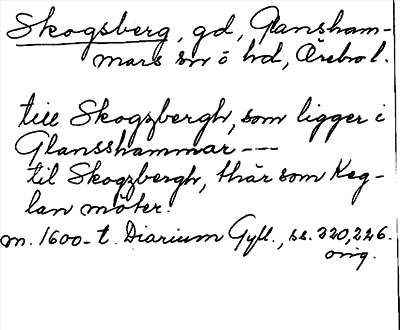 Skogsberg, gd, Glansham-
mars sn o hd, Örebro l.
till Skogzbergh, som ligger i
Glansshammar ---
til Skogzbergh, thär som Keg-
lan möter.
m. 1600-t. Diarium Gyll., ss. 320, 226.
orig.